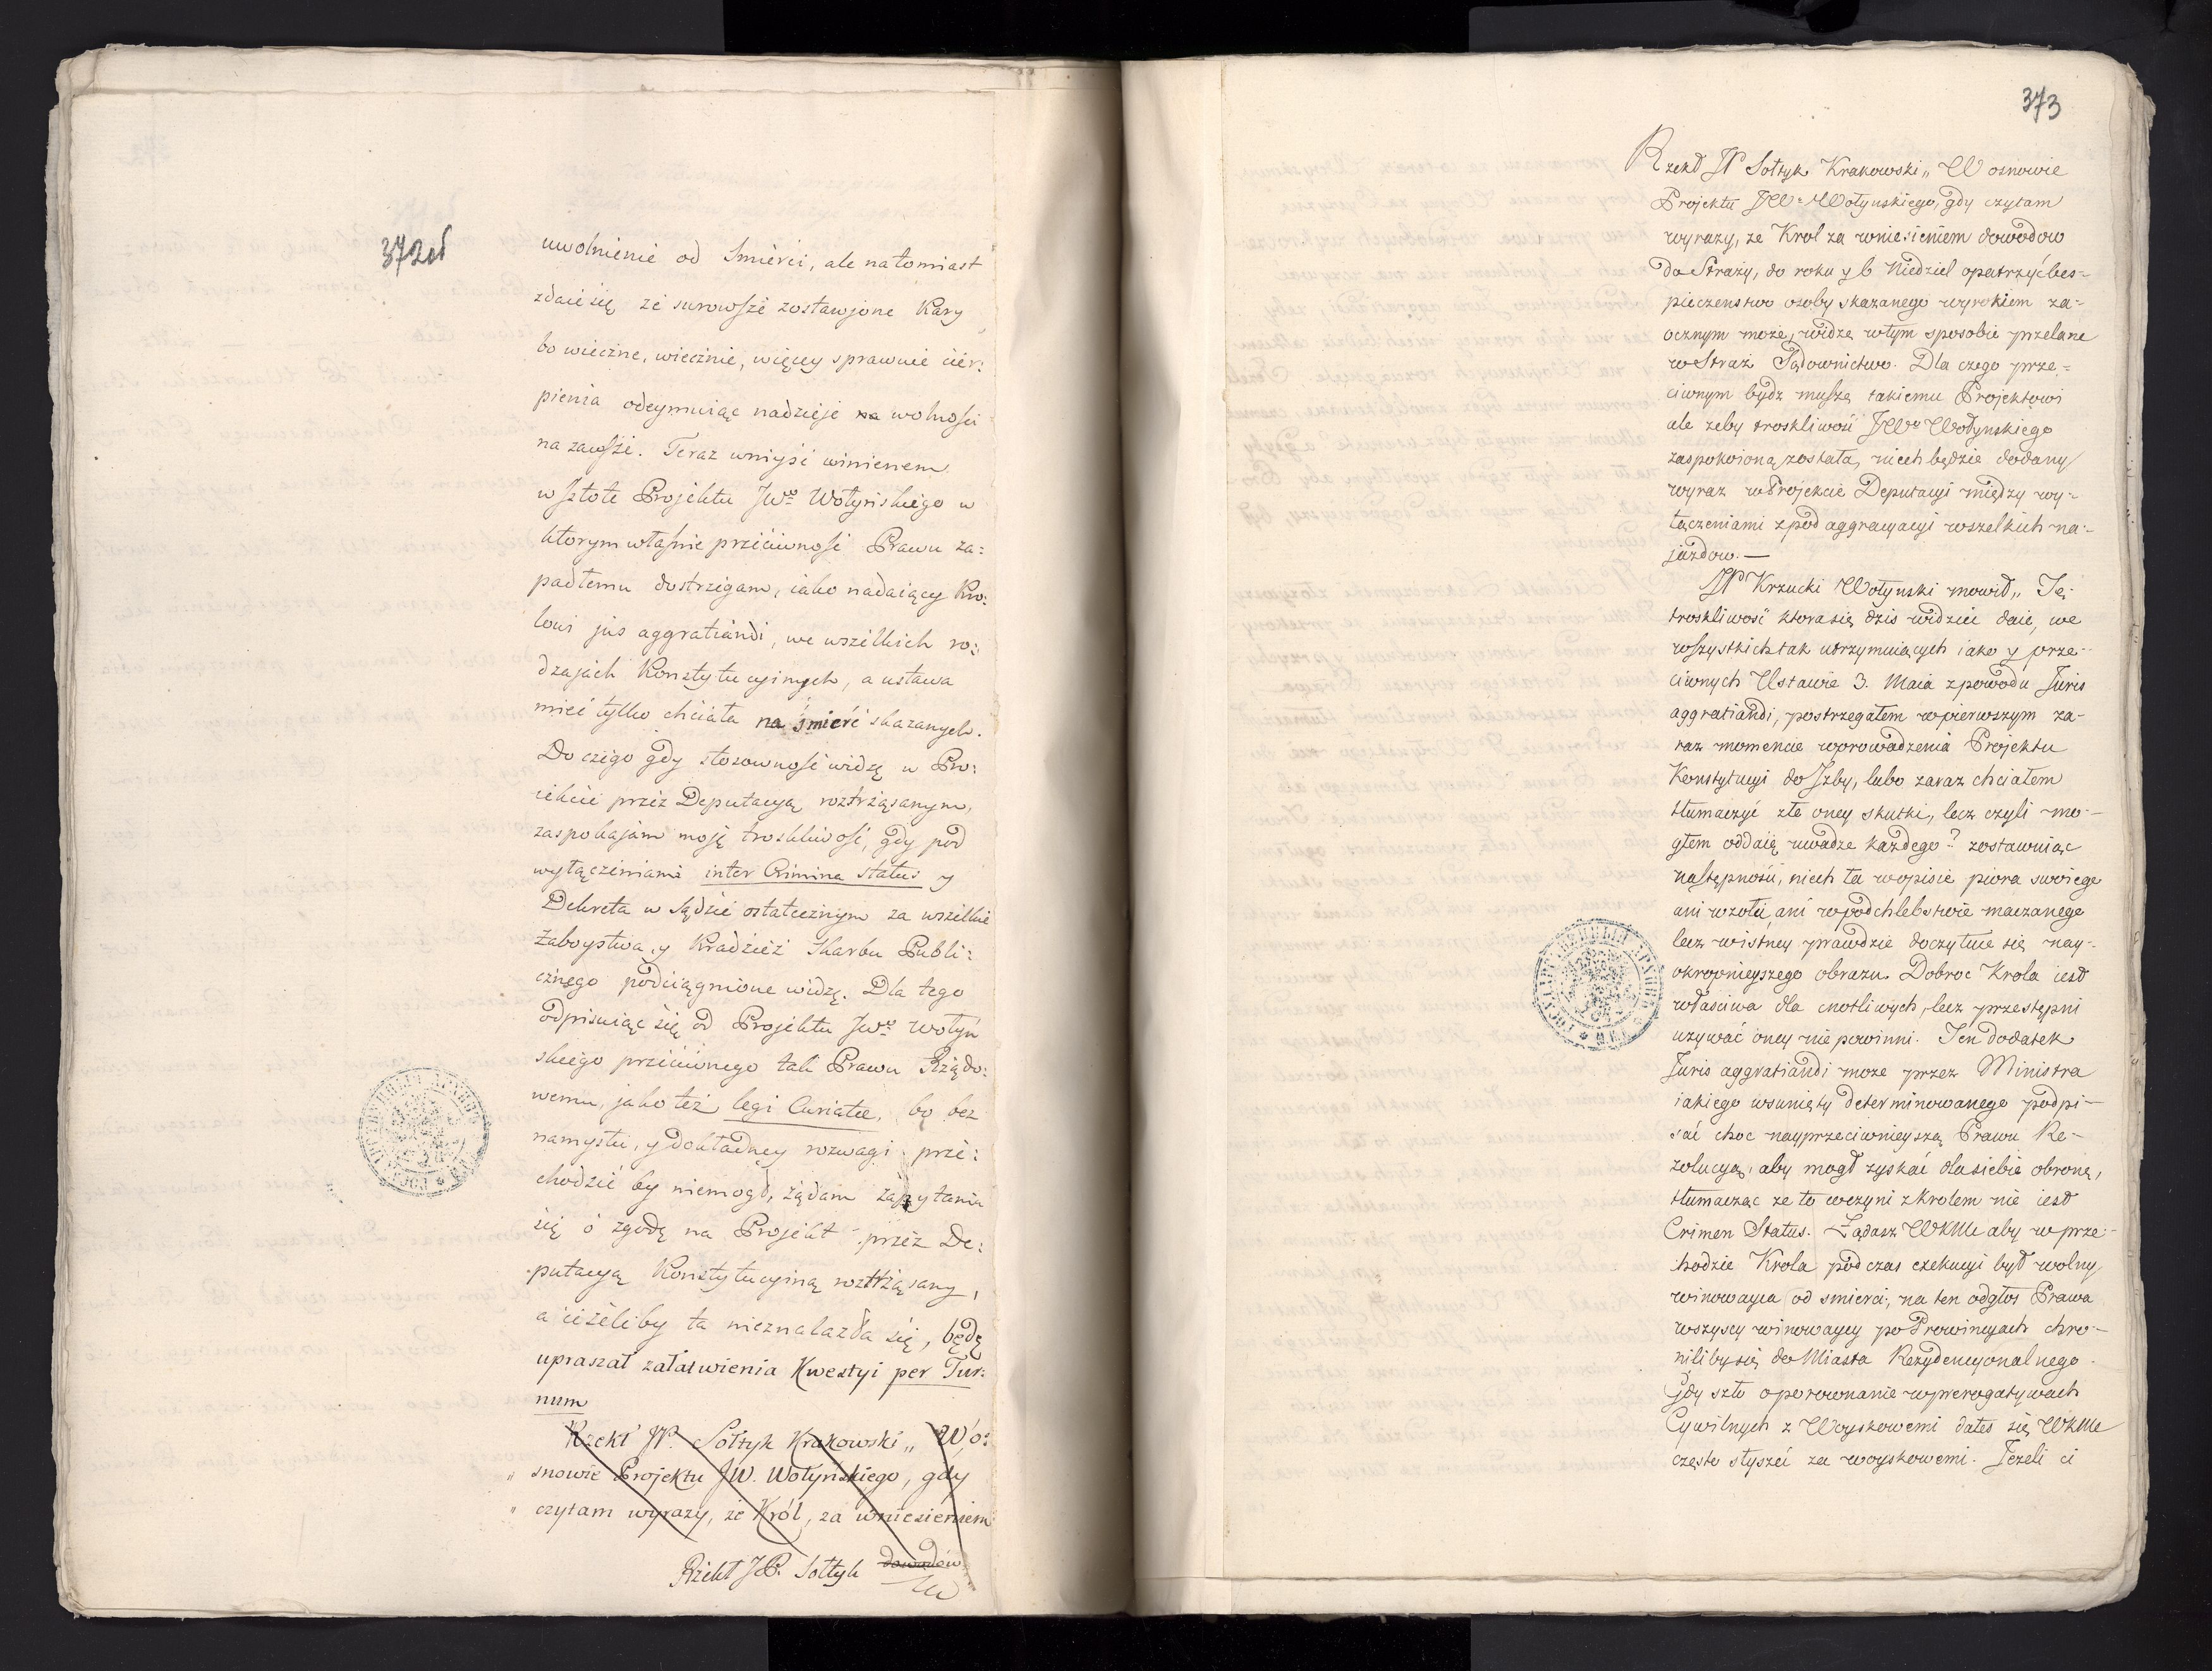 372od
uwolnienie od Smierci, ale natomiast
zdaie się że surowsze zostawione Kary
bo wieczne, wiecznie, więcey sprawuie cier:
pienia odeymuiąc nadzieje na wolności
na zawsze. Teraz wniyść winienem
w Istotę Projektu JWgo Wołyńskiego w
ktorym własnie przeciwność Prawu za:
padłemu dostrzegam, iako nadaiący Kro:
lowi jus aggratiandi, we wszelkich ro:
dzajach Konstytucyinych, a ustawa
mieć tylko chciała na śmierć skazanych.
Do czego gdy stosowność widzę w Pro:
iekcie przez Deputacyą roztrząsanym,
zaspokajam moję troskliwość, gdy pod
wyłączeniami inter Crimina Status y
Dekreta w Sądzie ostatecznym za wszelkie
Zaboystwa, y Kradzież Skarbu Publi:
cznego podciągnione widzę. Dla tego
odpisuiąc się od Projektu JWgo Wołyń
skiego przeciwnego tak Prawu Rządo:
wemu, jako też legi Curiatae, bo bez
namysłu, y dokładney rozwagi prze:
chodzić by niemogł, żądam zapytania
się o zgodę na Projekt przez De:
putacyą Konstytucyiną roztrząsany,
a ieżeliby ta nieznalazła się, będę
upraszał załatwienia Kwestyi per Tur:
num
Rzekł JP. Sołtyk Krakowski „ W o:
„ snowie Projektu JW. Wołyńskiego, gdy
„ czytam wyrazy, że Król, za wniesieniem
Rzekł JP. Sołtyk dowodów
373
Rzekł JP Sołtyk Krakowski „ W osnowie
Projektu JWo Wołynskiego, gdy czytam
wyrazy, ze Krol za wniesieniem dowodow
do Strazy, do roku y 6 Niedziel opatrzyć bes-
pieczenstwo osoby skazanego wyrokiem za-
ocznym może, widzę w tym sposobie przelane
w Straż Sądownictwo. Dla czego prze-
ciwnym bydz muszę takiemu Projektowi
ale zeby troskliwość JWo Wołynskiego
zaspokoioną została, niech będzie dodany
wyraz w Projekcie Deputacyi między wy-
łączeniami z pod aggracyacyi wszelkich na-
jazdow.—
JP Krzucki Wołynski mowił „ Tę
troskliwość ktora się dzis widzieć daie, we
wszystkich tak utrzymuiących iako y prze-
ciwnych Ustawie 3. Maia z powodu Juris
aggratiandi, postrzegałem w pierwszym za-
raz momencie wprowadzenia Projektu
Konstytucyi do Izby, lubo zaraz chciałem
tłumaczyć złe oney skutki, lecz czyli mo-
głem oddaię uwadze każdego? zostawuiąc
następności, niech ta w opisie piora swoiego
ani w złoci ani w podchlebstwie maczanego
lecz w istney prawdzie doczytuie się nay-
okropnieyszego obrazu. Dobroc Krola iest
własciwa dla cnotliwych, lecz przestępni
uzywać oney nie powinni. Ten dodatek
Juris aggratiandi moze przez Ministra
iakiego wsunięty determinowanego podpi-
sać choc nayprzeciwnieyszą Prawu Re-
zolucyą, aby mogł zyskać dla siebie obronę,
tłumacząc ze to uczyni z Krolem nie iest
Crimen Status. Ządasz WKMc aby w prze-
chodzie Krola podczas exekucyi był wolny
winowayca od smierci, na ten odgłos Prawa
wszyscy winowaycy po Prowincyach chro-
niliby się do Miasta Rezydencyonalnego.
Gdy szło o porownanie w prerogatywach
Cywilnych z Woyskowemi dałeś się WKMc
często słyszeć za woyskowemi. Jezeli ci